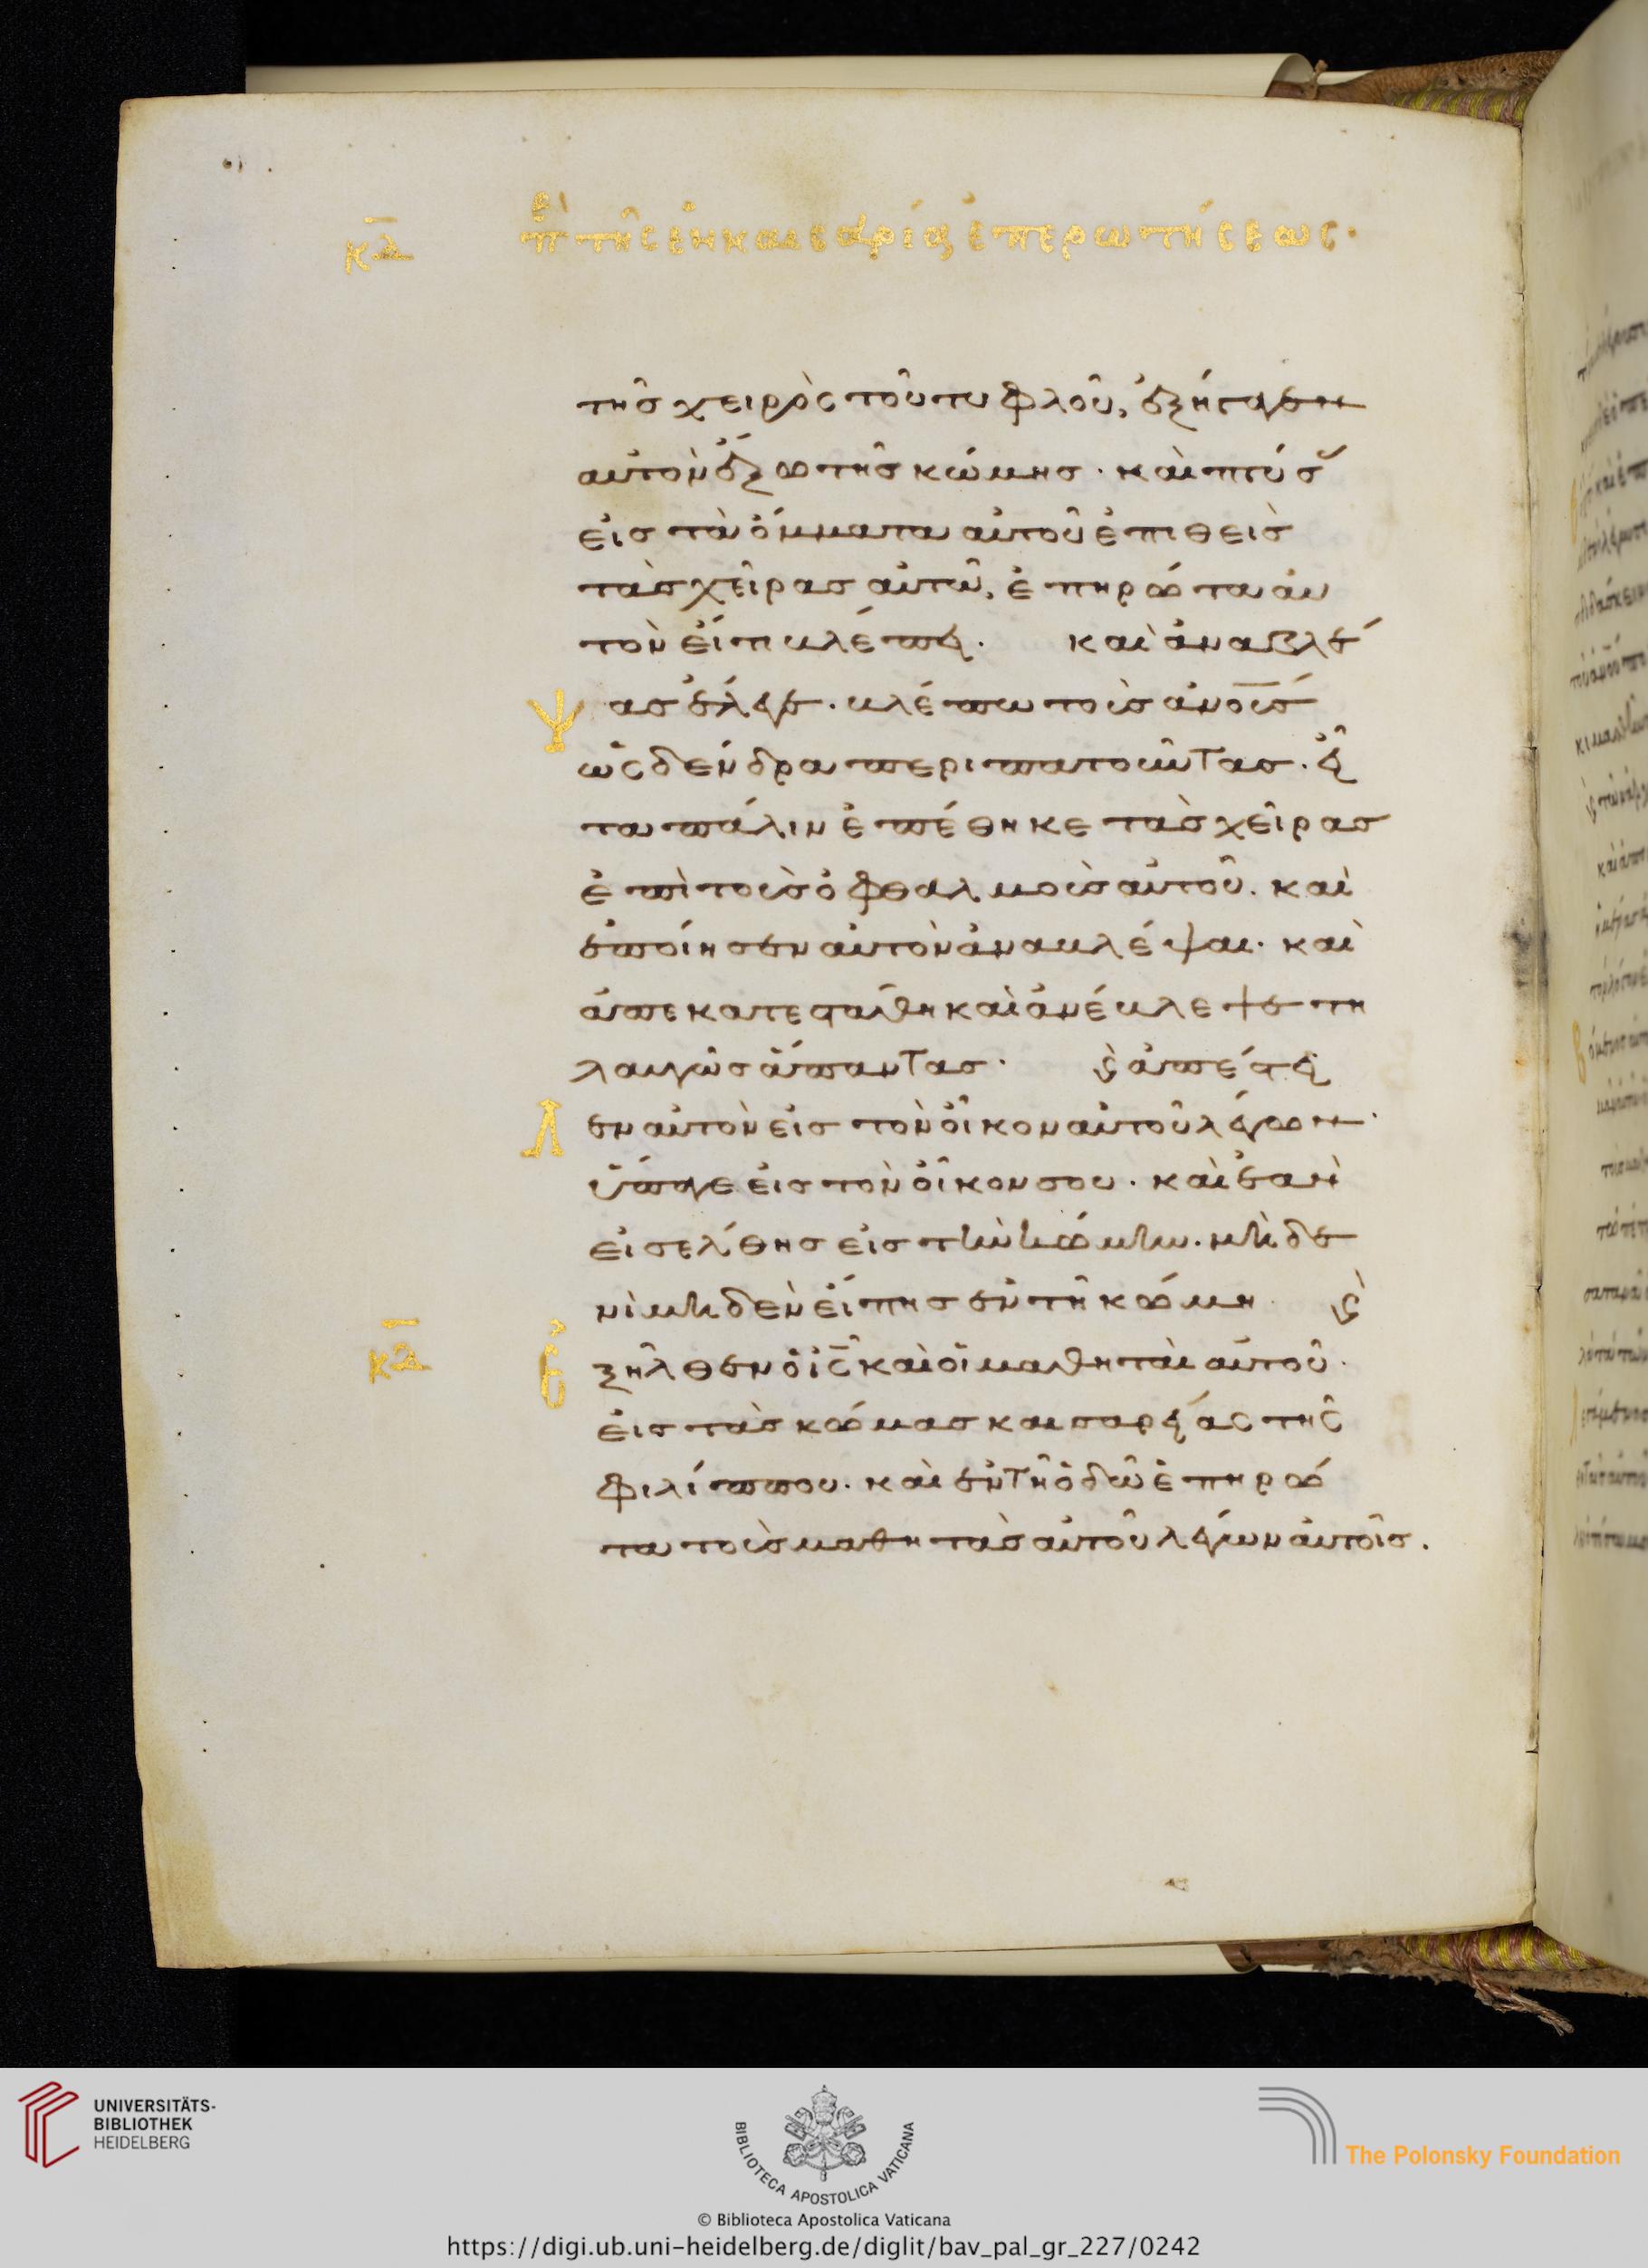 κδ περὶ τῆς ἐν καισαρίᾳ ἐπερωτήσεως·
τῆσ χειρὸς τοῦ τυφλοῦ, ἐξήγαγεν
αὐτὸν ἔξω τῆσ κώμησ· καὶ πτύσ
εἰσ τὰ ὄμματα αὐτοῦ ἐπιθεὶσ
τὰσ χεῖρασ αὐτῶ, ἐπηρώτα αυ
τὸν εἴ τι βλέπει. καὶ ἀναβλέ
ψασ ἔλεγε. βλέπω τοὺσ ἀνουσ
ὡς δένδρα περιπατοῦντασ. εἶ
τα πάλιν ἐπέθηκε τὰσ χεῖρασ
ἐπὶ τοὺσ ὀφθαλμοὺσ αὐτοῦ. καὶ
ἐποίησεν αὐτὸν ἀναβλέψαι. καὶ
ἀπεκατεστάθη καὶ ἀνέβλεψε τη
λαυγῶσ ἅπαντασ· ϛ ἀπέστει
Λεν αὐτὸν εἰσ τὸν οἶκον αὐτοῦ λέγων·
ὕπαγε εἰσ τὸν οἶκον σου. καὶ ἐὰν
εἰσελθησ εἰσ τὴν κώμην. μὴδε
νὶ μηδὲν εἴπησ ἐν τῆ κώμη. ϛ
κδ Ἐξῆλθεν ὁ ἰσ καὶ οἱ μαθηταὶ αὐτοῦ.
εἰσ τὰσ κώμασ καισαρείας τῆς
φιλίππου. καὶ ἐν τῆ ὁδῶ ἐπηρώ
τα τοὺσ μαθητὰσ αὐτοῦ λέγων αὐτοῖσ.
UNIVERSITÄTS-
BIBLIOTHEK
HEIDELBERG
BIBLIOTECA APOSTOLICA VATICANA
The Polonsky Foundation
© Biblioteca Apostolica Vaticana
https://digi.ub.uni-heidelberg.de/diglit/bav_pal_gr_227/0242